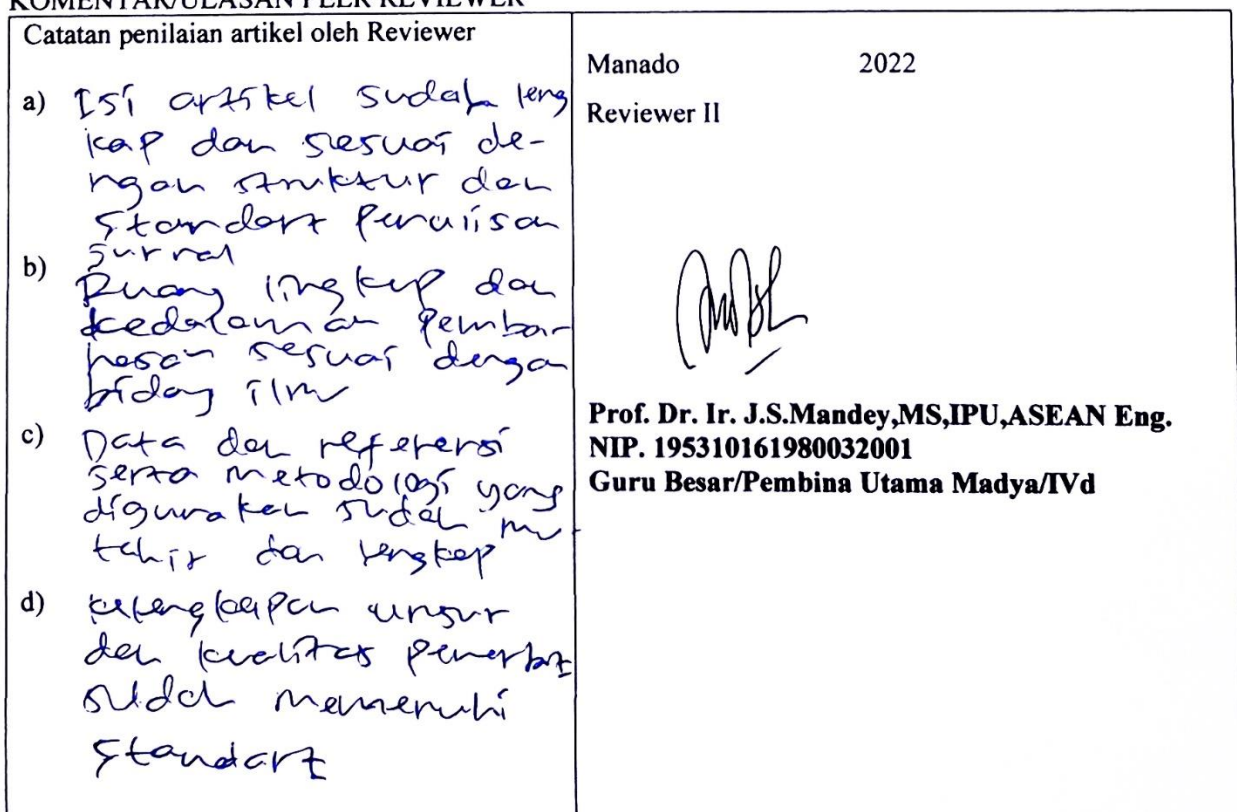 KOMENTAR/ULASAN PEER REVIEWER
Catatan penilaian artikel oleh Reviewer
a) Isi artikel sudah leng
kap dan sesuai de-
ngan struktur dan
standart penulisan
jurnal
b) Ruang lingkup dan
kedalaman pemba-
hasan sesuai dengan
bidang ilmu
c) Data dan referensi
serta metodologi yang
digunakan sudah mu-
tahir dan lengkap
d) kelengkapan unsur
dan kualitas penerbit
sudah memenuhi
standart
Manado 2022
Reviewer II
Prof. Dr. Ir. J.S.Mandey,MS,IPU,ASEAN Eng.
NIP. 195310161980032001
Guru Besar/Pembina Utama Madya/IVd